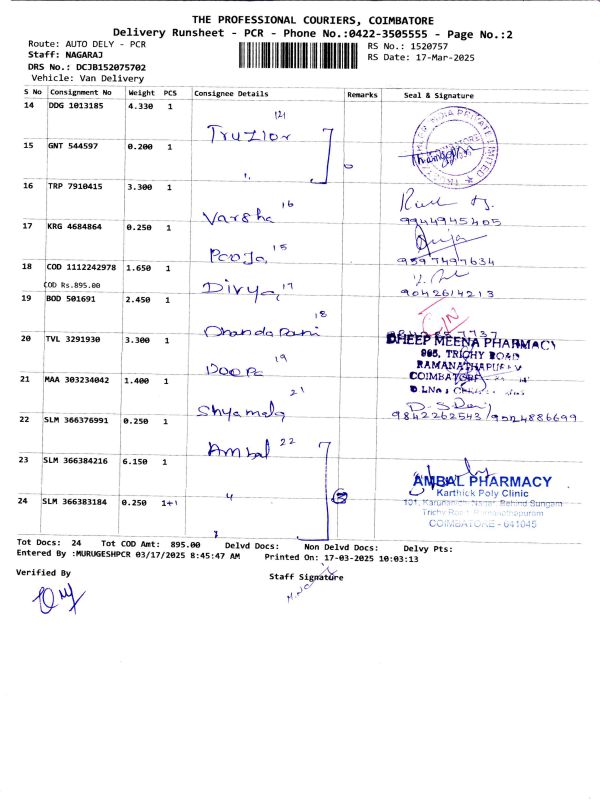 THE PROFESSIONAL COURIERS, COIMBATORE
Delivery Runsheet - PCR - Phone No.:0422-3505555 - Page No.:2
Route: AUTO DELY - PCR
RS No.: 1520757
Staff: NAGARAJ
RS Date: 17-Mar-2025
DRS No.: DCJB152075702
Vehicle: Van Delivery
S No Consignment No Weight PCS Consignee Details Remarks Seal & Signature
14 DDG 1013185 4.330 1
Truzlor 121
15 GNT 544597 0.200 1
16 TRP 7910415 3.300 1
Varsha 16
9944945405
17 KRG 4684864 0.250 1
Pooja 15
9597497634
18 COD 1112242978 1.650 1
COD Rs.895.00
Divya 17
9042614213
19 BOD 501691 2.450 1
Chanda Rani 18
20 TVL 3291930 3.300 1
19
DHEEP MEENA PHARMACY
995, TRICHY ROAD
RAMANATHAPURAM
COIMBATORE
21 MAA 303234042 1.400 1
Shyamala 21
9842262543/9524886699
22 SLM 366376991 0.250 1
Ambal 22
23 SLM 366384216 6.150 1
24 SLM 366383184 0.250 1+1
AMBAL PHARMACY
Karthick Poly Clinic
101, Karunanidhi Nagar, Behind Sungam
Trichy Road, Ramanathapuram
COIMBATORE - 641045
Tot Docs: 24 Tot COD Amt: 895.00 Delvd Docs: Non Delvd Docs: Delvy Pts:
Entered By :MURUGESHPCR 03/17/2025 8:45:47 AM Printed On: 17-03-2025 10:03:13
Verified By
Staff Signature